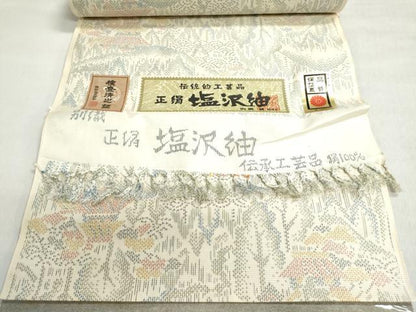 伝統的工芸品
正絹 塩沢紬
検査済之証
別織
正絹 塩沢紬
伝承工芸品 絹100%